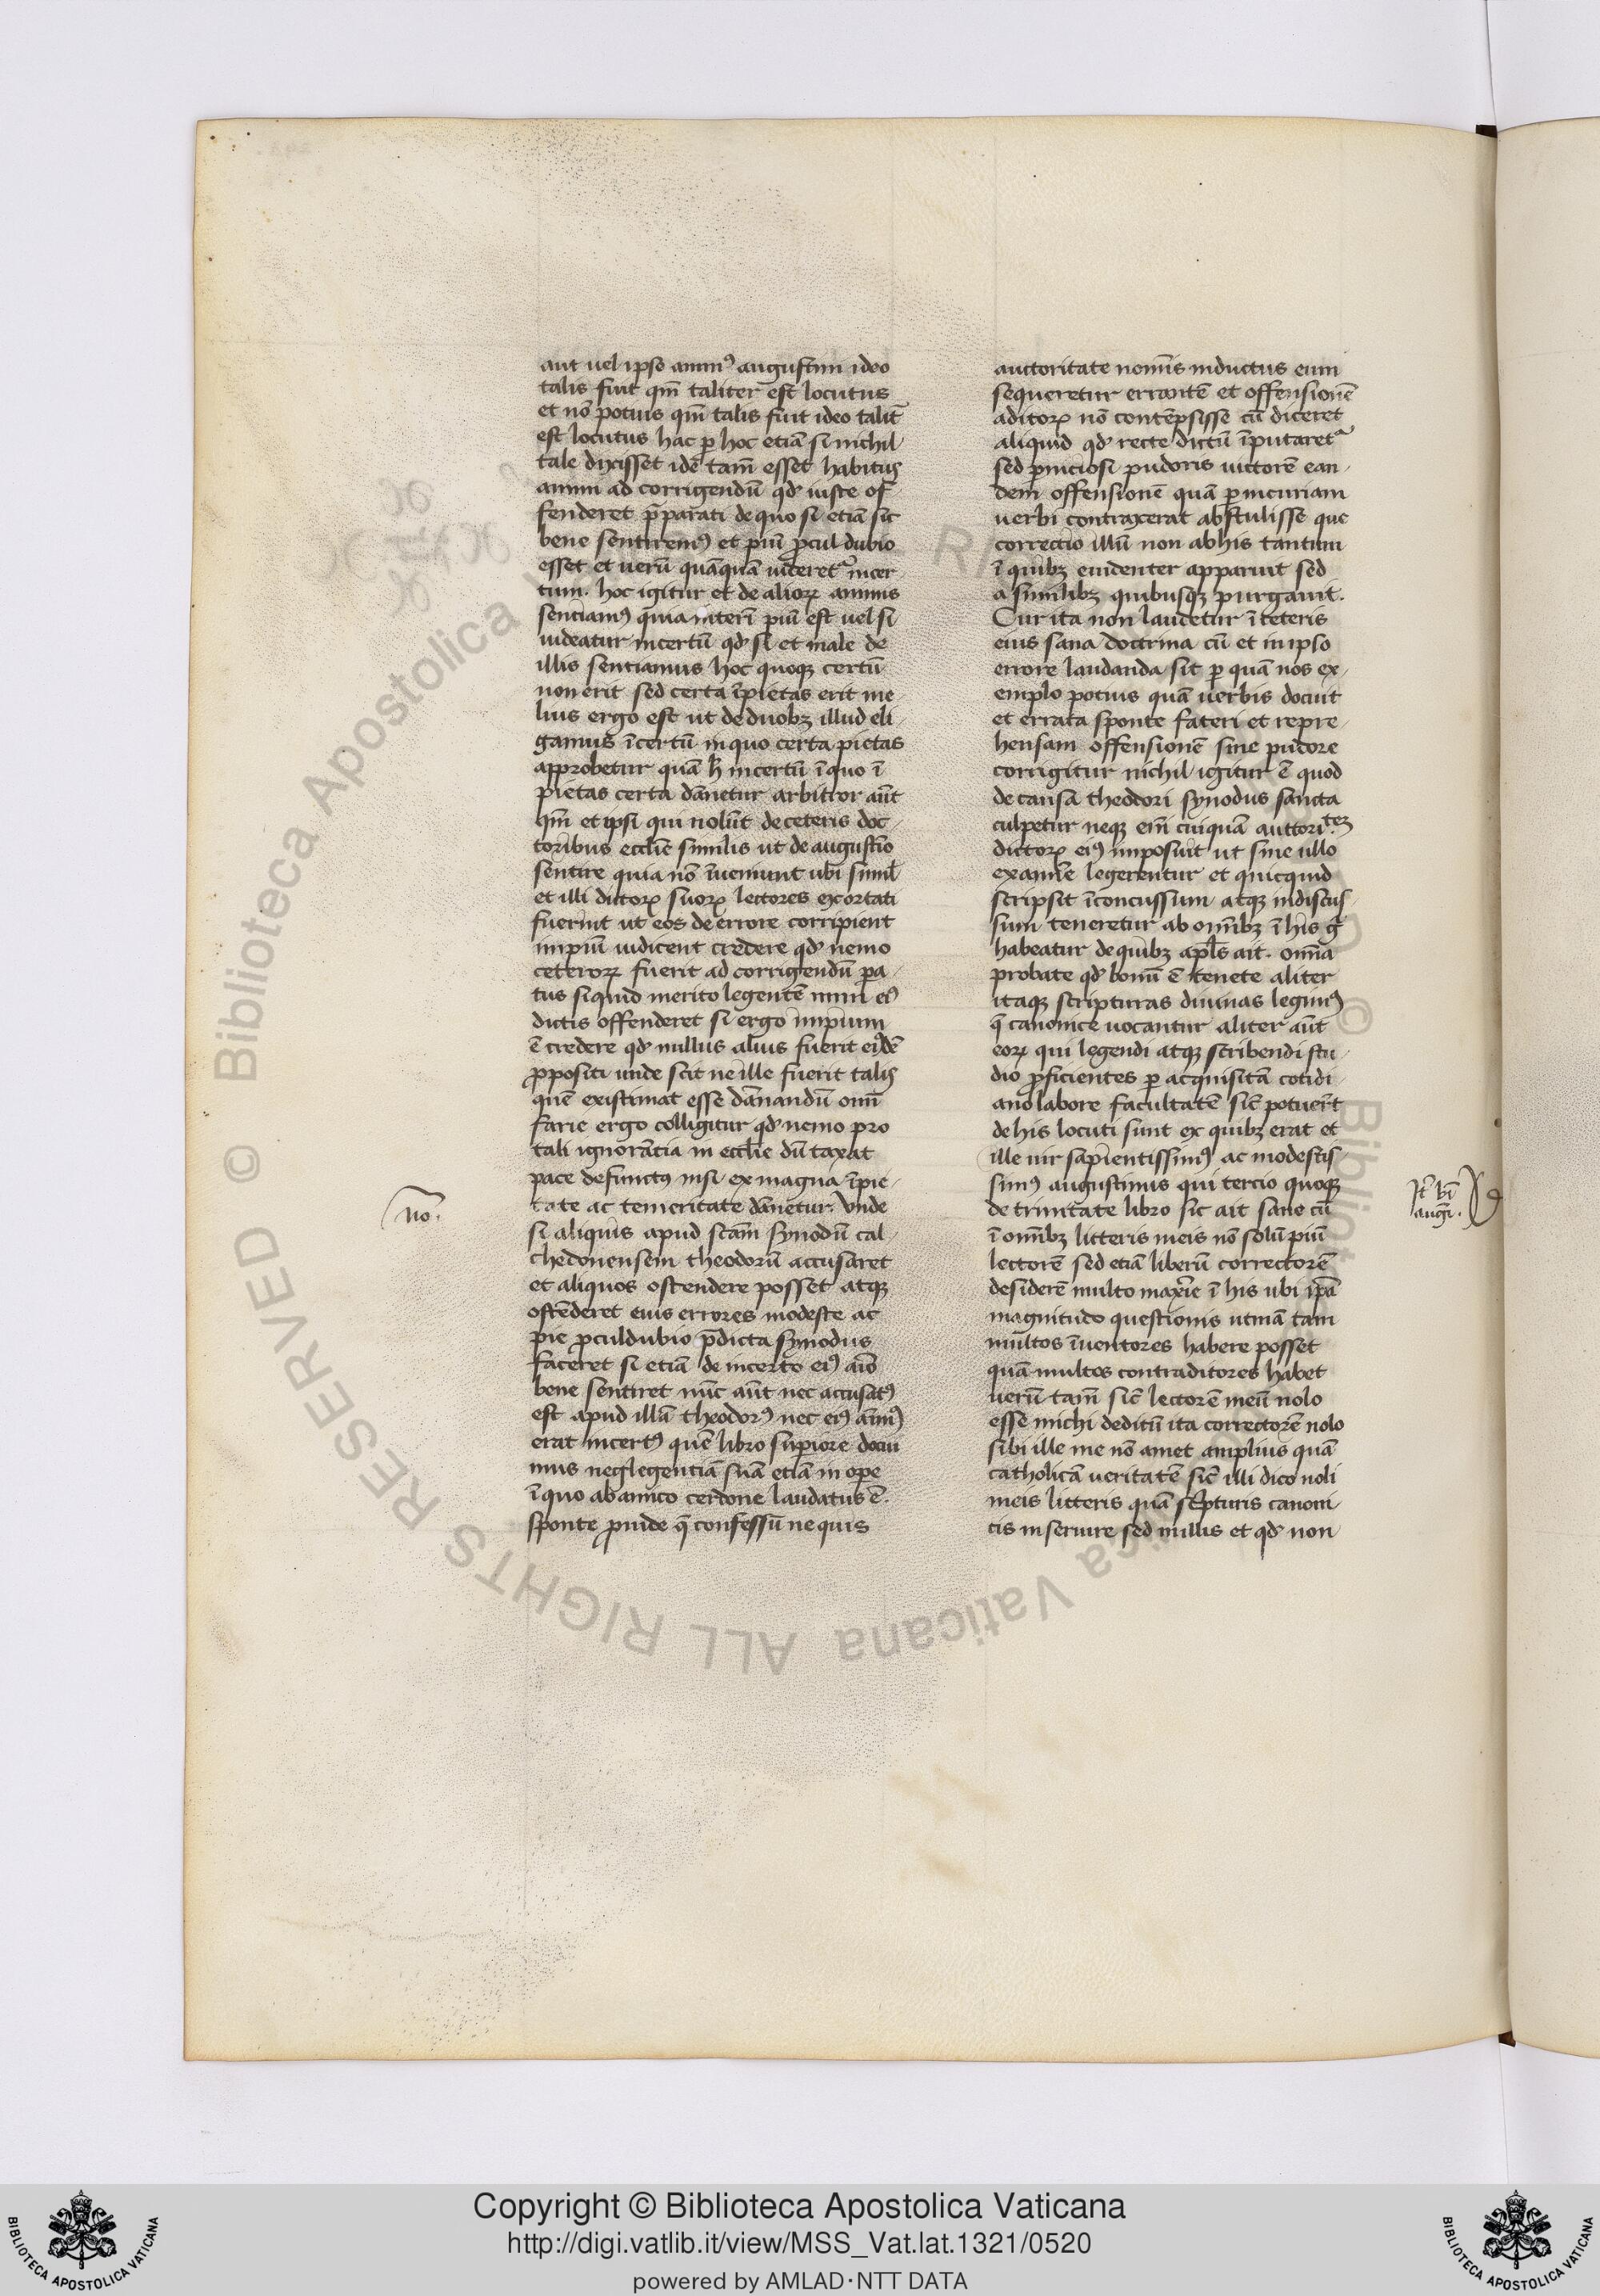 aut uel ipse animꝰ augustini ideo
talis fuit qm̄ taliter est locutus
et nō potius qm̄ talis fuit ideo talit̄
est locutus hac ꝑ hoc etiā si nichil
tale dixisset idē tam̄ esset habitus
animi ad corrigendū qd̄ iuste of
fenderet p̄parati de quo si etiā sic
bene sentiremꝰ et piū ꝓcul dubio
esset et uerū quāquā uideretᷣ incer
tum. hoc igitur et de alioꝝ animis
sentiamꝰ quia interī piū est uel si
uideatur incertū qd̄ si et male de
illis sentiamus hoc quoqꝫ certū
non erit sed certa īpietas erit me
lius ergo est ut de duobꝫ illud eli
gamus īcertū in quo certa pietas
approbetur quā h̄ incertū ī quo ī
pietas certa dānetur arbitror aūt
qm̄ et ipsi qui nolūt de ceteris doc
toribus ecclīe similis ut de augustīo
sentire quia nō īueniunt ubi simil̄
et illi dictoꝝ suoꝝ lectores exortati
fuerint ut eos de errore corripient
impiū iudicent credere qd̄ nemo
ceteroꝝ fuerit ad corrigendū pa
tus si quid merito legentē in eiꝰ
dictis offenderet si ergo impium
ē credere qd̄ nullus alius fuerit eiꝰdē
ꝓpositi unde scit ne ille fuerit talis
quē existimat esse dānandū om̄
farie ergo colligitur qd̄ nemo pro
tali ignorātia in ecclīe dū taxat
pace defunctꝰ nisi ex magna īpie
tate ac temeritate dānetur. Vnde
si aliquis apud scām synodū cal
chedonensem theodorū accusaret
et aliquos ostendere posset atqꝫ
ostēderet eius errores modeste ac
pie ꝓculdubio p̄dicta synodus
faceret si etiā de incerto eiꝰ aīo
bene sentiret nūc aūt nec accusatꝰ
est apud illā theodorꝰ nec eiꝰ aīmꝰ
erat incertꝰ quē libro supiore docui
mus neglegentiā suā etiā in ope
ī quo ab amico cerdone laudatus ē.
sponte ꝓinde q̄ confessū ne quis
no.
auctoritate nomīs inductus eum
sequeretur errantē et offensionē
aditoꝝ nō contēpsisse cū diceret
aliquid qd̄ recte dictū īputaretᷣ
sed ꝑniciosi pudoris uictorē ean
dem offensionē quā ꝑ incuriam
uerbi contraxerat abstulisse que
correctio illū non ab his tantum
ī quibꝫ euidenter apparuit sed
a similibꝫ quibusqꝫ purgauit.
Cur ita non laudetur ī ceteris
eius sana doctrina cū et in ip̄o
errore laudanda sit ꝑ quā nos ex
emplo potius quā uerbis docuit
et errata sponte fateri et repre
hensam offensionē sine pudore
corrigitur nichil igitur ē quod
de causa theodori synodus sancta
culpetur neqꝫ em̄ cuiquā auttoriteꝫ
dictoꝝ eiꝰ imposuit ut sine ullo
examīe legerentur et quicquid
scripsit īconcussum atqꝫ indiscus
sum teneretur ab om̄ibꝫ ī his g̊
habeatur de quibꝫ apl̄s ait. om̄ia
probate qd̄ bonū ē tenete aliter
itaqꝫ scripturas diuinas legimꝰ
q̄ canonice uocantur aliter aūt
eoꝝ qui legendi atqꝫ scribendi stu
dio ꝓficientes ꝑ acquisitā cotidi
ano labore facultatē sic̄ potuer̄t
de his locuti sunt ex quibꝫ erat et
ille uir sapientissimꝰ ac modestis
simꝰ augustinus qui tercio quoqꝫ
de trinitate libro sic ait sane cū
ī om̄ibꝫ litteris meis nō solū piū
lectorē sed etiā liberū correctorē
desiderē multo maxīe ī his ubi ip̄a
magnitudo questionis utinā tam
multos īuentores habere posset
quā multos contraditores habet
uerū tam̄ sic̄ lectorē meū nolo
esse michi deditū ita correctorē nolo
sibi ille me nō amet amplius quā
catholicā ueritatē sic̄ illi dico noli
meis litteris quā sc̄pturis canoni
cis inseruire sed in illis et qd̄ non
Jt̄ bī
augī.
Copyright © Biblioteca Apostolica Vaticana
http://digi.vatlib.it/view/MSS_Vat.lat.1321/0520
powered by AMLAD·NTT DATA
BIBLIOTECA APOSTOLICA VATICANA
BIBLIOTECA APOSTOLICA VATICANA
© Biblioteca Apostolica Vaticana ALL RIGHTS RESERVED